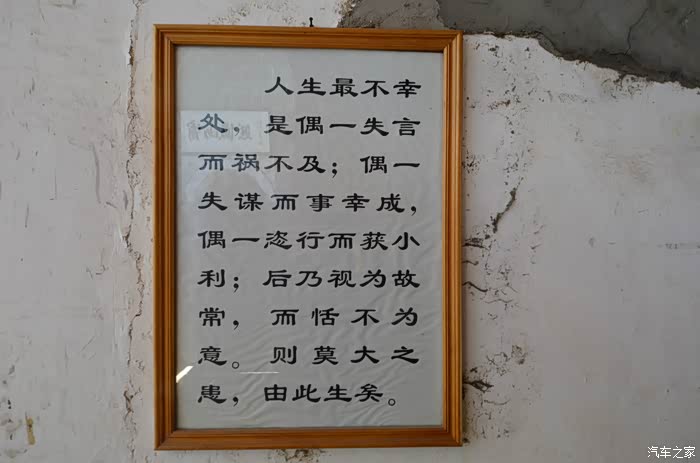 人生最不幸
处，是偶一失言
而祸不及；偶一
失谋而事幸成，
偶一恣行而获小
利；后乃视为故
常，而恬不为
意。则莫大之
患，由此生矣。
汽车之家